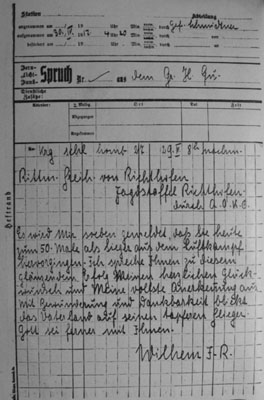 Station
Abteilung
angenommen
19
Uhr
Min.
durch
aufgenommen
Uhr
Min.
durch
befördert
Uhr
Min.
durch
Spruch Nr.
aus dem Gr. H. Qu.
Dienstliche
Zusätze:
Ort
Zeit
8 h nachm.
Rittm. Freih. von Richthofen
Jagdstaffel Richthofen
durch A.O.K. 6.
Es wird Mir soeben gemeldet, daß Sie heute
zum 50. Male als Sieger aus dem Luftkampf
hervorgingen. Ich spreche Ihnen zu diesem
glänzenden Erfolg Meinen herzlichen Glück-
wunsch und Meine vollste Anerkennung aus.
Mit Bewunderung und Dankbarkeit blickt
das Vaterland auf seinen tapferen Flieger.
Gott sei ferner mit Ihnen.
Wilhelm I. R.
Heftrand